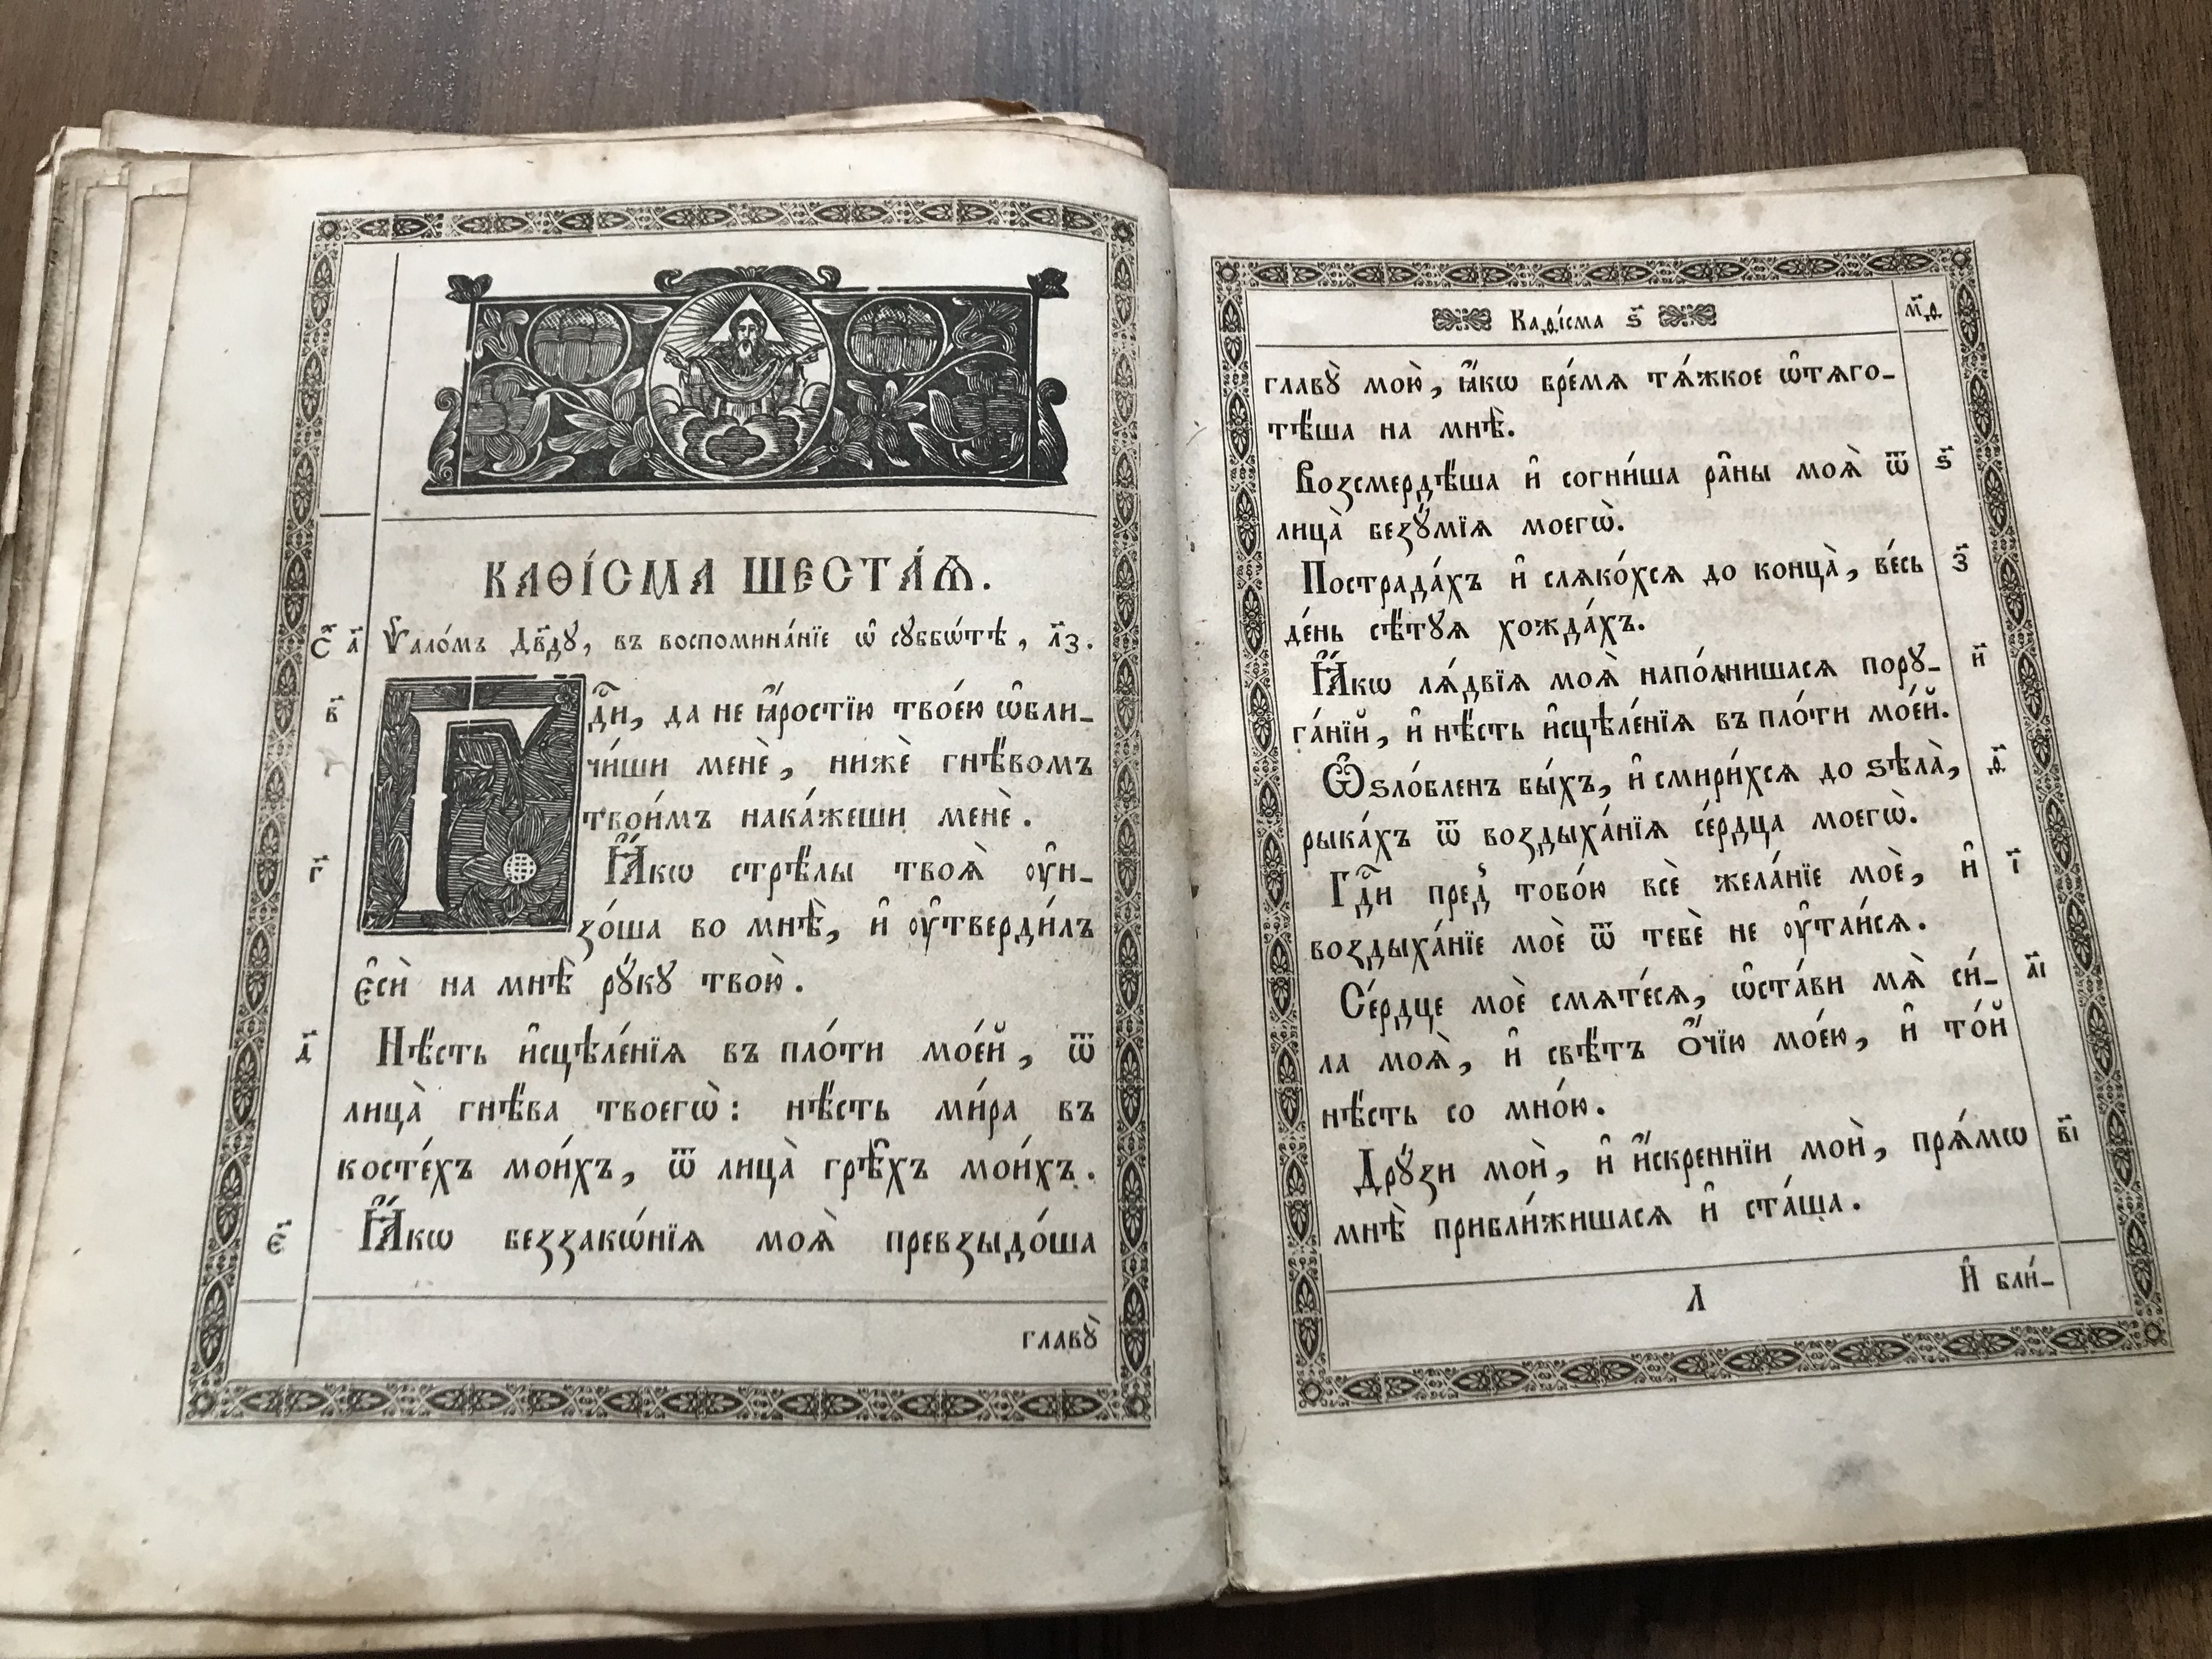 КАѲІ́СМА ШЕСТА́Ѧ.
С҃ а҃ Ѱало́мъ Дв҃дꙋ, въ воспомина́нїе ѡ҆ сꙋббѡ́тѣ, л҃з.
в҃ Гдⷭ҇и, да не ꙗ҆́ростїю твое́ю ѡ҆бли-
чи́ши менѐ, нижѐ гнѣ́вомъ
твои́мъ нака́жеши менѐ.
г҃ Ꙗ҆́кѡ стрѣ́лы твоѧ̀ ᲂу҆н-
зо́ша во мнѣ̀, и҆ ᲂу҆тверди́лъ
є҆сѝ на мнѣ̀ рꙋ́кꙋ твою̀.
д҃ Нѣ́сть и҆сцѣле́нїѧ въ пло́ти мое́й, ѿ
лица̀ гнѣ́ва твоегѡ̀: нѣ́сть ми́ра въ
косте́хъ мои́хъ, ѿ лица̀ грѣ̑хъ мои́хъ.
є҃ Ꙗ҆́кѡ беззакѡ́нїѧ моѧ̀ превзыдо́ша
главꙋ̀
Каѳі́сма ѕ҃ м҃д
главꙋ̀ мою̀, ꙗ҆́кѡ бре́мѧ тѧ́жкое ѡ҆тѧго-
тѣ́ша на мнѣ̀.
Возсмердѣ́ша и҆ согни́ша ра̑ны моѧ̀ ѿ ѕ҃
лица̀ безꙋ́мїѧ моегѡ̀.
Пострада́хъ и҆ слѧко́хсѧ до конца̀, ве́сь з҃
де́нь сѣ́тꙋѧ хожда́хъ.
Ꙗ҆́кѡ лѧ́двїѧ моѧ̀ напо́лнишасѧ порꙋ- и҃
га́нїй, и҆ нѣ́сть и҆сцѣле́нїѧ въ пло́ти мое́й.
Ѡ҆ѕло́бленъ бы́хъ, и҆ смири́хсѧ до ѕѣла̀, ѳ҃
рыка́хъ ѿ воздыха́нїѧ се́рдца моегѡ̀.
Гдⷭ҇и пред̾ тобо́ю всѐ жела́нїе моѐ, и҆ і҃
воздыха́нїе моѐ ѿ тебѐ не ᲂу҆таи́сѧ.
Се́рдце моѐ смѧте́сѧ, ѡ҆ста́ви мѧ̀ си́- а҃і
ла моѧ̀, и҆ свѣ́тъ ѻ҆́чїю мое́ю, и҆ то́й
нѣ́сть со мно́ю.
Дрꙋ́зи моѝ, и҆ и҆́скреннїи моѝ, прѧ́мѡ в҃і
мнѣ̀ прибли́жишасѧ и҆ ста́ша.
Л И҆ бли́-